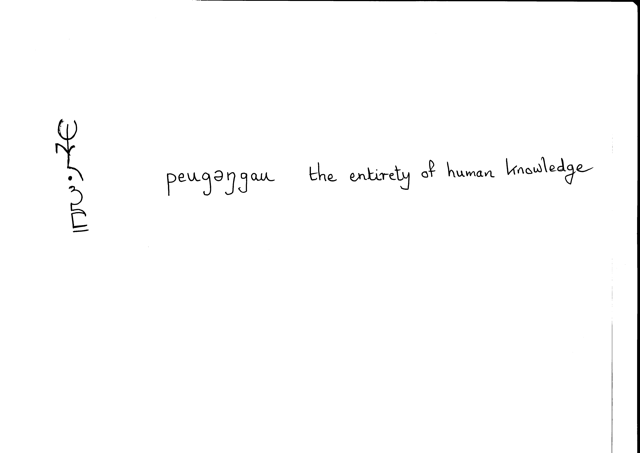 peugəŋgau the entirety of human knowledge